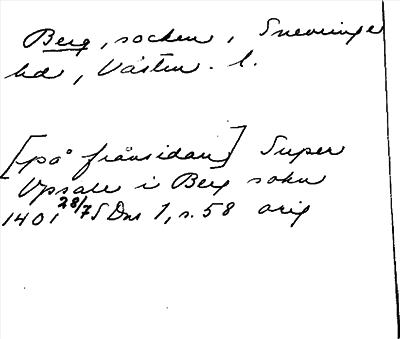 Berg, socken, Snevringe
hd, Västm. l.
[på frånsidan] Super
Upsale i Berg sokn
1401 28/7 SDns 1, s. 58 orig